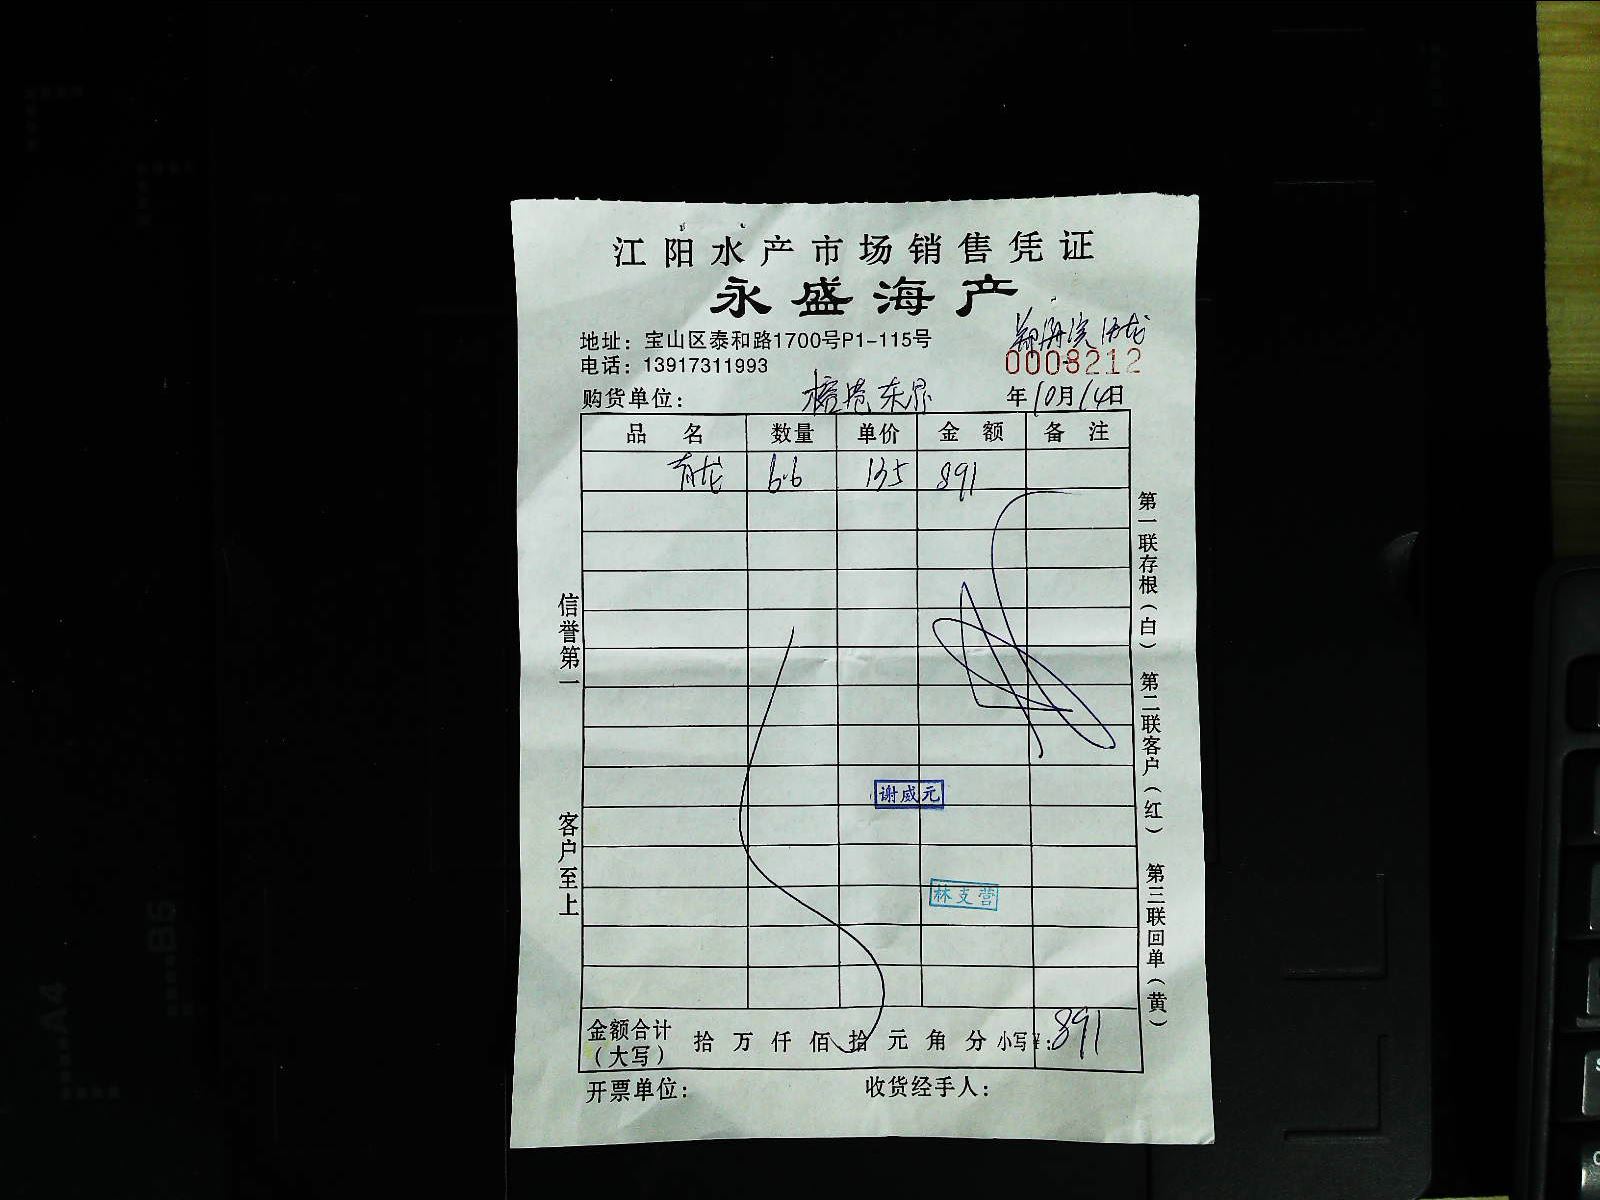 江阳水产市场销售凭证
永盛海产
地址：宝山区泰和路1700号P1-115号
电话：13917311993
0008212
购货单位： 年10月14日
品名 数量 单价 金额 备注
青龙 6.6 135 891
信誉第一
客户至上
第一联存根（白） 第二联客户（红） 第三联回单（黄）
谢威元
林支营
金额合计（大写） 拾万仟佰拾元角分 小写¥：891
开票单位： 收货经手人：